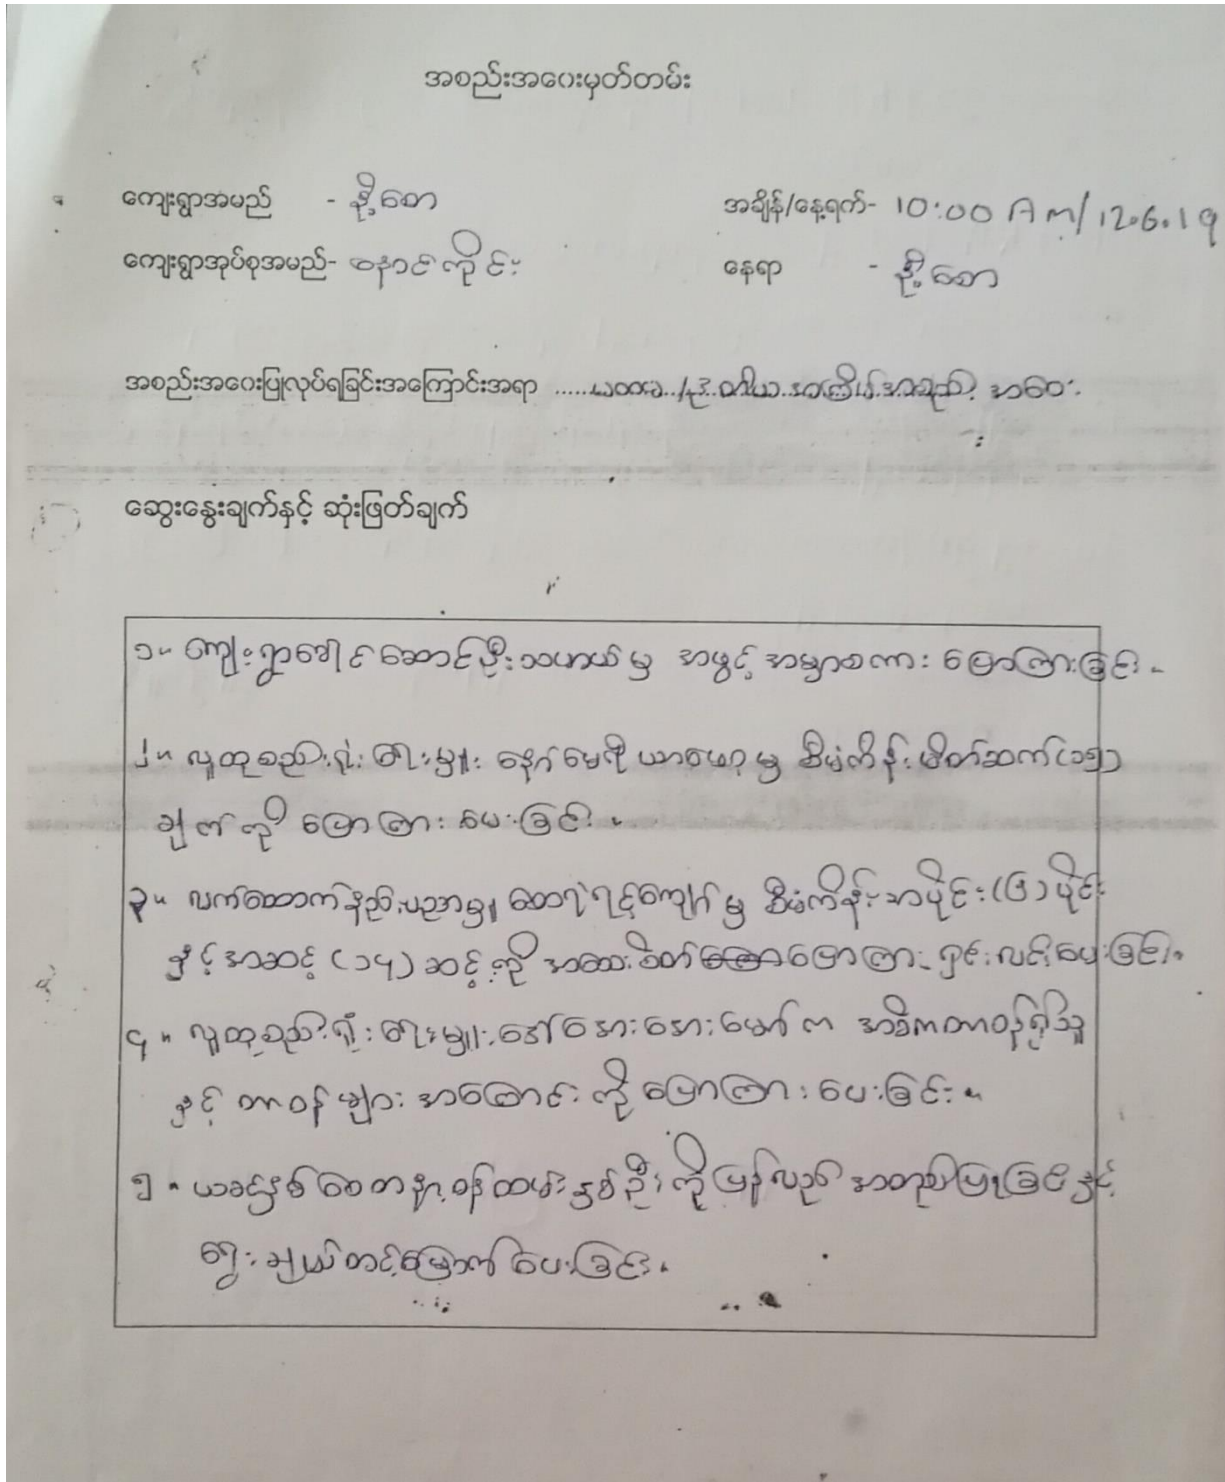 အစည်းအဝေးမှတ်တမ်း
ကျေးရွာအမည် - နို့စော အချိန်/နေ့ရက်- 10:00 Am/12.6.19
ကျေးရွာအုပ်စုအမည်- နောင်ကိုင်း နေရာ - နို့စော
အစည်းအဝေးပြုလုပ်ရခြင်းအကြောင်းအရာ ...... /ဒုတိယ အကြိမ် အစည်း အဝေး
ဆွေးနွေးချက်နှင့် ဆုံးဖြတ်ချက်
၁။ ကျေးရွာခေါင်ဆောင်ဦး မှ အဖွင့် အမှာစကား ပြောကြားခြင်း။
၂။ လူထုစည်းရုံးရေးမှူး မှ စီမံကိန်းမိတ်ဆက်(၁၅)
ချက်ကို ပြောကြားပေးခြင်း။
၃။ လက်ထောက်နည်းပညာမှူး မှ စီမံကိန်းအပိုင်း(၆)ပိုင်း
နှင့်အဆင့်(၁၄)ဆင့်ကို အသေးစိတ် ပြောကြား ရှင်းလင်းပေးခြင်း။
၄။ လူထုစည်းရုံးရေးမှူး ဒေါ်အေးအေးမော်က အဓိကတာဝန်ရှိသူ
နှင့် တာဝန်များအကြောင်းကို ပြောကြားပေးခြင်း။
၅။ ယခင်နှစ်စေတနာ့ဝန်ထမ်းနှစ်ဦးကိုပြန်လည်အတည်ပြုခြင်းနှင့်
ရွေးချယ်တင်မြှောက်ပေးခြင်း။